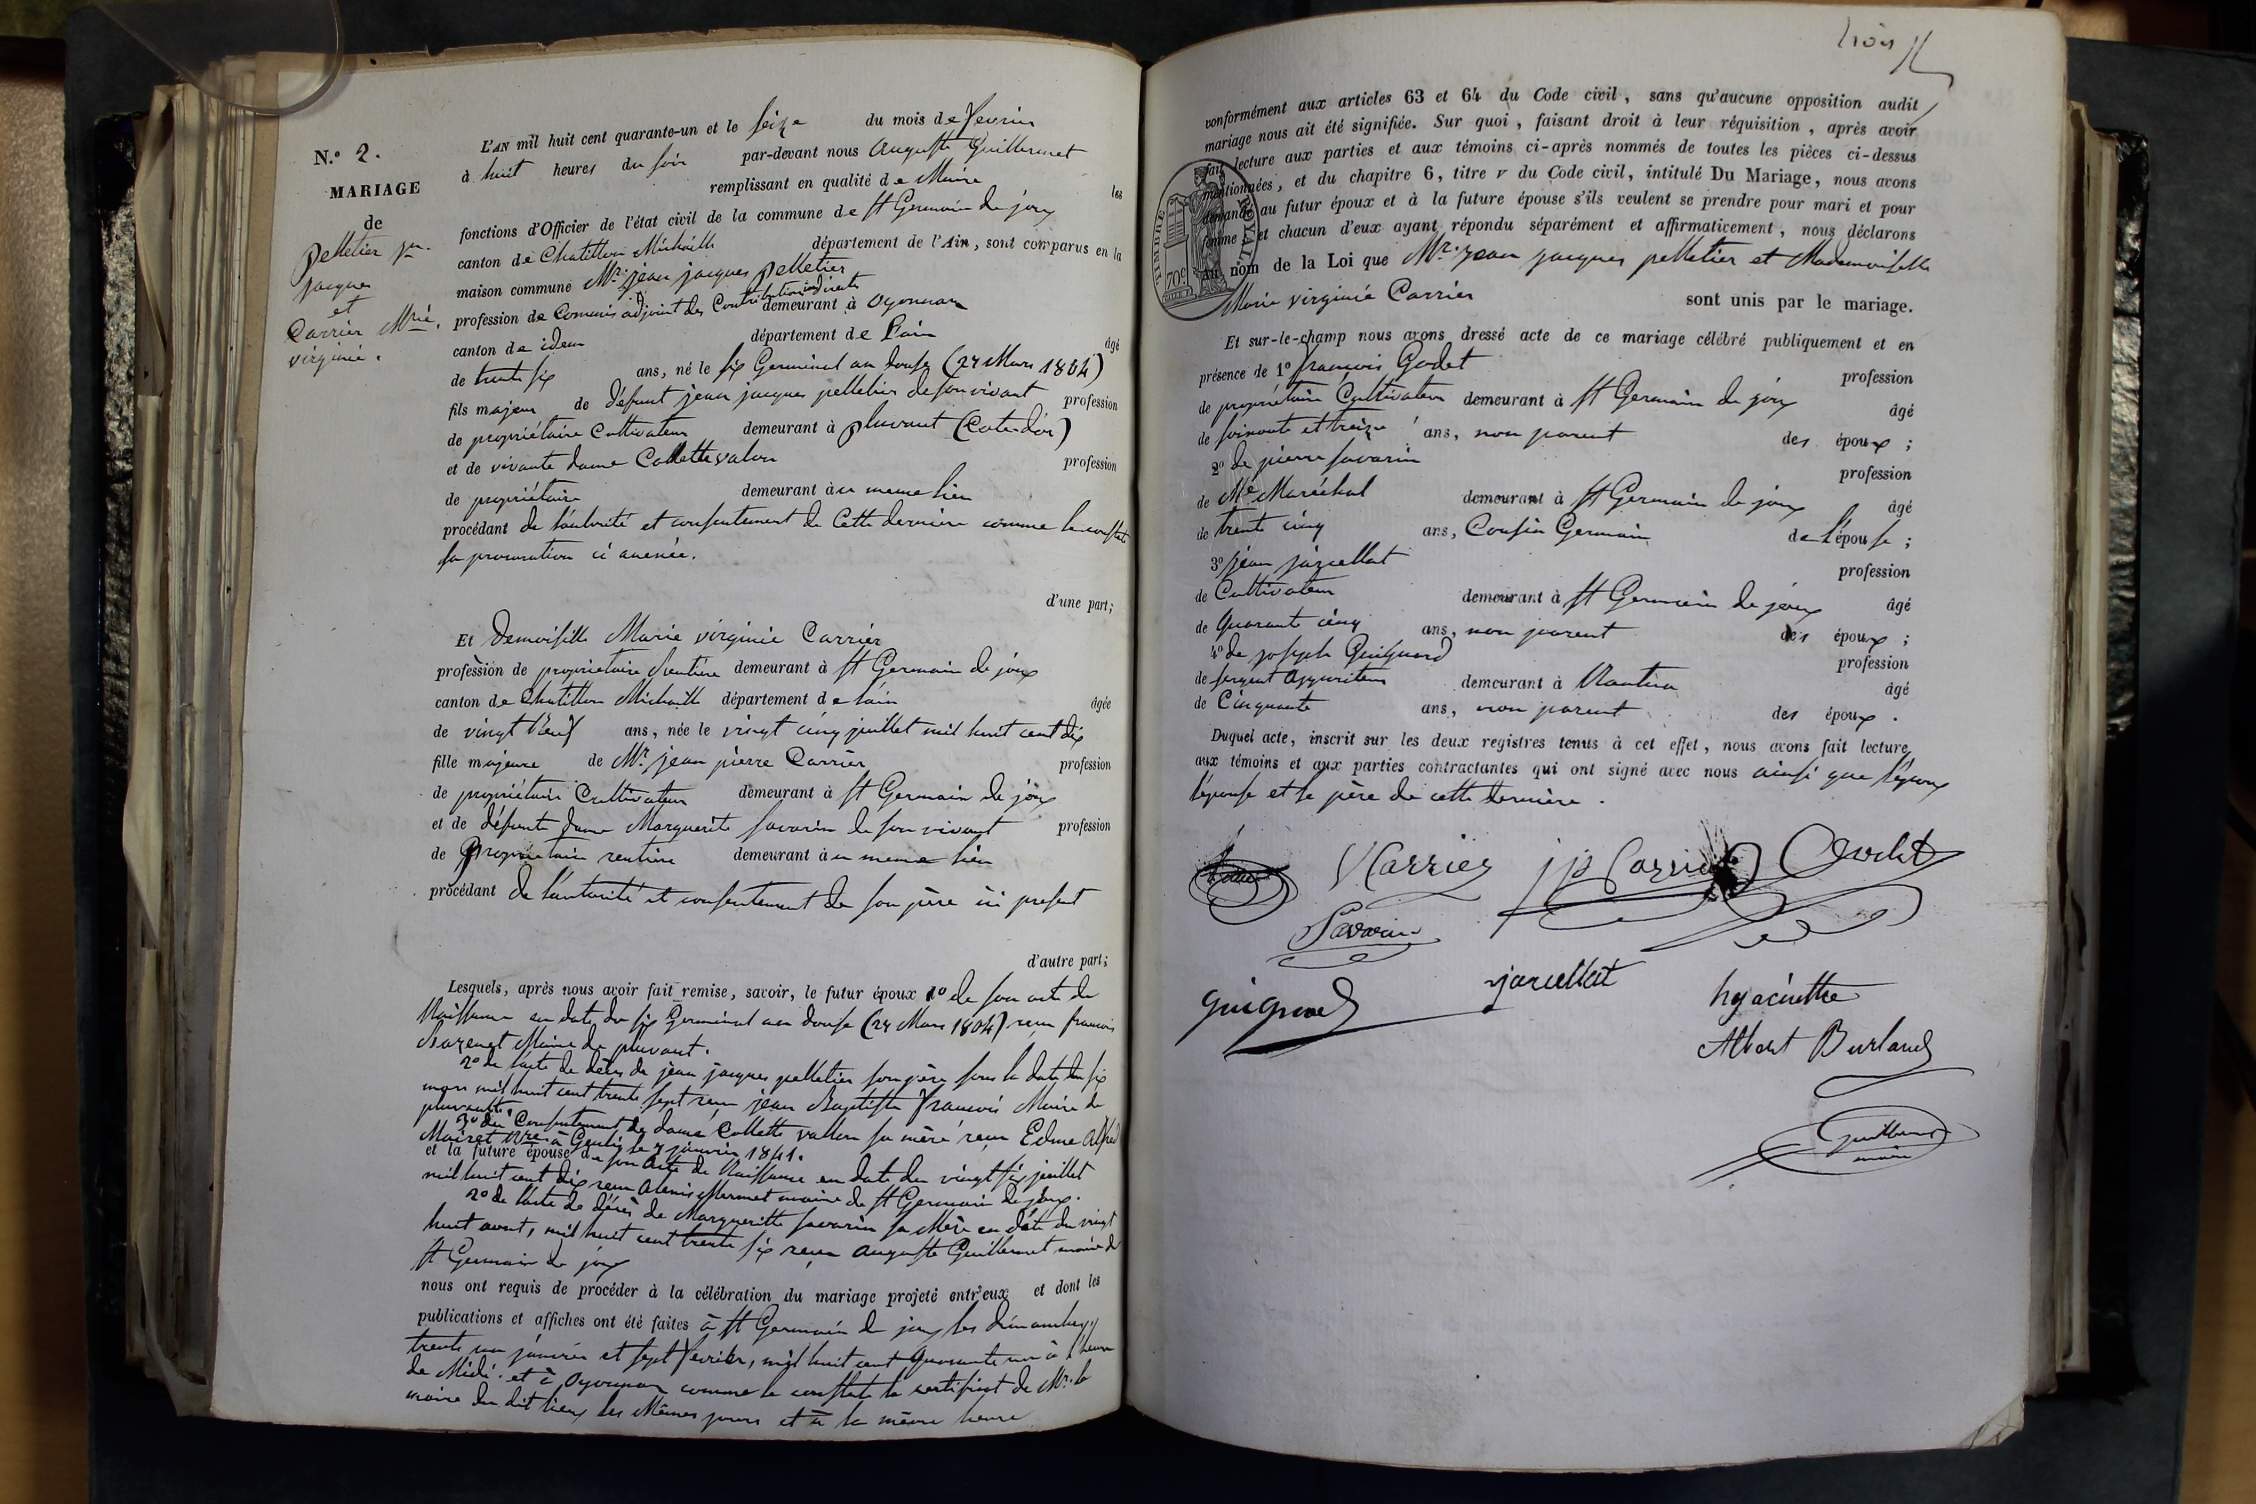 N.º 2.
MARIAGE
de
Pelletier jn.
jacques
et
Carrier Mrie.
virginie.
L'AN mil huit cent quarante-un et le seize du mois de fevrier
à huit heures du soir par-devant nous Auguste Guillermet
remplissant en qualité de Maire les
fonctions d'Officier de l'état civil de la commune de St Germain de joux
canton de Chatillon Michaille département de l'Ain, sont comparus en la
maison commune Mr. jean jacques Pelletier
profession de Commis adjoint des Contributions indirectes demeurant à Oyonnax
canton de idem département de l'ain âgé
de trente six ans, né le six Germinal an douse (27 Mars 1804)
fils majeur de défunt jean jacques pelletier de son vivant profession
de propriétaire Cultivateur demeurant à pluvaut (Cote d'or)
et de vivante dame Collette valon profession
de propriétaire demeurant à u meme lieu
procédant de l'autorité et consentement de Cette dernière comme le constate
sa procuration ci anexée.
d'une part;
Et Demoiselle Marie virginie Carrier
profession de propriétaire Rentière demeurant à St Germain de joux
canton de Chatillon Michaille département de l'ain âgée
de vingt Neuf ans, née le vingt cinq juillet mil huit cent dix
fille majeure de Mr. jean pierre Carrier profession
de propriétaire Cultivateur demeurant à St Germain de joux
et de défunte dame Marguerite Savarin de son vivant profession
de Propriétaire rentière demeurant à u meme lieu
procédant de l'autorité et consentement de son père ici present
d'autre part;
Lesquels, après nous avoir fait remise, savoir, le futur époux 1º de son acte de
Naissance en date du six Germinal an douse (27 Mars 1804) reçu francois
Maire de pluvaut.
2º de l'acte de décès de jean jacques pelletier son père sous la date du six
mars mil huit cent trente sept reçu jean Baptiste francois Maire de
pluvault.
3º du Consentement de dame Collette vallon sa mère reçu Edme Alfred
Mairet Nre à Genlis le 7 janvier 1841.
et la future épouse de son Acte de Naissance en date du vingt six juillet
mil huit cent dix reçu Mermet maire de St Germain de joux.
2º de l'acte de décès de Marguerite Savarin sa Mère en date du vingt
huit aout, mil huit cent trente six reçu Auguste Guillermet maire de
St Germain de joux
nous ont requis de procéder à la célébration du mariage projeté entr'eux et dont les
publications et affiches ont été faites à St Germain de joux les dimanches
trente un janvier et sept fevrier, mil huit cent quarante un à l'heure
de Midi. et à Oyonnax comme le constate le certificat de Mr. le
maire du dit lieu, les Mêmes jours et à la même heure
trois
conformément aux articles 63 et 64 du Code civil, sans qu'aucune opposition audit
mariage nous ait été signifiée. Sur quoi, faisant droit à leur réquisition, après avoir
fait lecture aux parties et aux témoins ci-après nommés de toutes les pièces ci-dessus
mentionnées, et du chapitre 6, titre V du Code civil, intitulé Du Mariage, nous avons
demandé au futur époux et à la future épouse s'ils veulent se prendre pour mari et pour
femme; et chacun d'eux ayant répondu séparément et affirmativement, nous déclarons
au nom de la Loi que Mr. jean jacques pelletier et Mademoiselle
Marie virginie Carrier sont unis par le mariage.
TIMBRE ROYAL
70c.
Et sur-le-champ nous avons dressé acte de ce mariage célébré publiquement et en
présence de 1º françois Godet profession
de propriétaire Cultivateur demeurant à St Germain de joux âgé
de soixante et treize ans, non parent des époux;
2º de pierre Savarin profession
de Me Maréchal demeurant à St Germain de joux âgé
de trente cinq ans, Cousin Germain de l'épouse;
3º jean jarcellat profession
de Cultivateur demeurant à St Germain de joux âgé
de quarante cinq ans, non parent des époux;
4º de joseph Guignard profession
de sergent Appariteur demeurant à Nantua âgé
de Cinquante ans, non parent des époux.
Duquel acte, inscrit sur les deux registres tenus à cet effet, nous avons fait lecture
aux témoins et aux parties contractantes qui ont signé avec nous ainsi que l'époux
l'épouse et le père de cette dernière.
V Carrier jp Carrier Godet
Savarin
guignard jarcellat hyacinthe
Albert Burland
Guillermet
maire